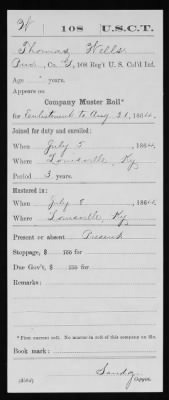 W 108 U.S.C.T.
Thomas Wells
Pvt., Co. G, 108 Reg't U. S. Col'd Inf.
Age years.
Appears on
Company Muster Roll*
for Enlistment to Aug 31, 1864.
Joined for duty and enrolled:
When July 5, 1864.
Where Louisville, Ky
Period 3 years.
Mustered in:
When July 8, 1864.
Where Louisville, Ky.
Present or absent Present
Stoppage, $ 100 for
Due Gov't, $ 100 for
Remarks:
* First muster roll. No muster-in roll of this company on file.
Book mark:
Copyist.